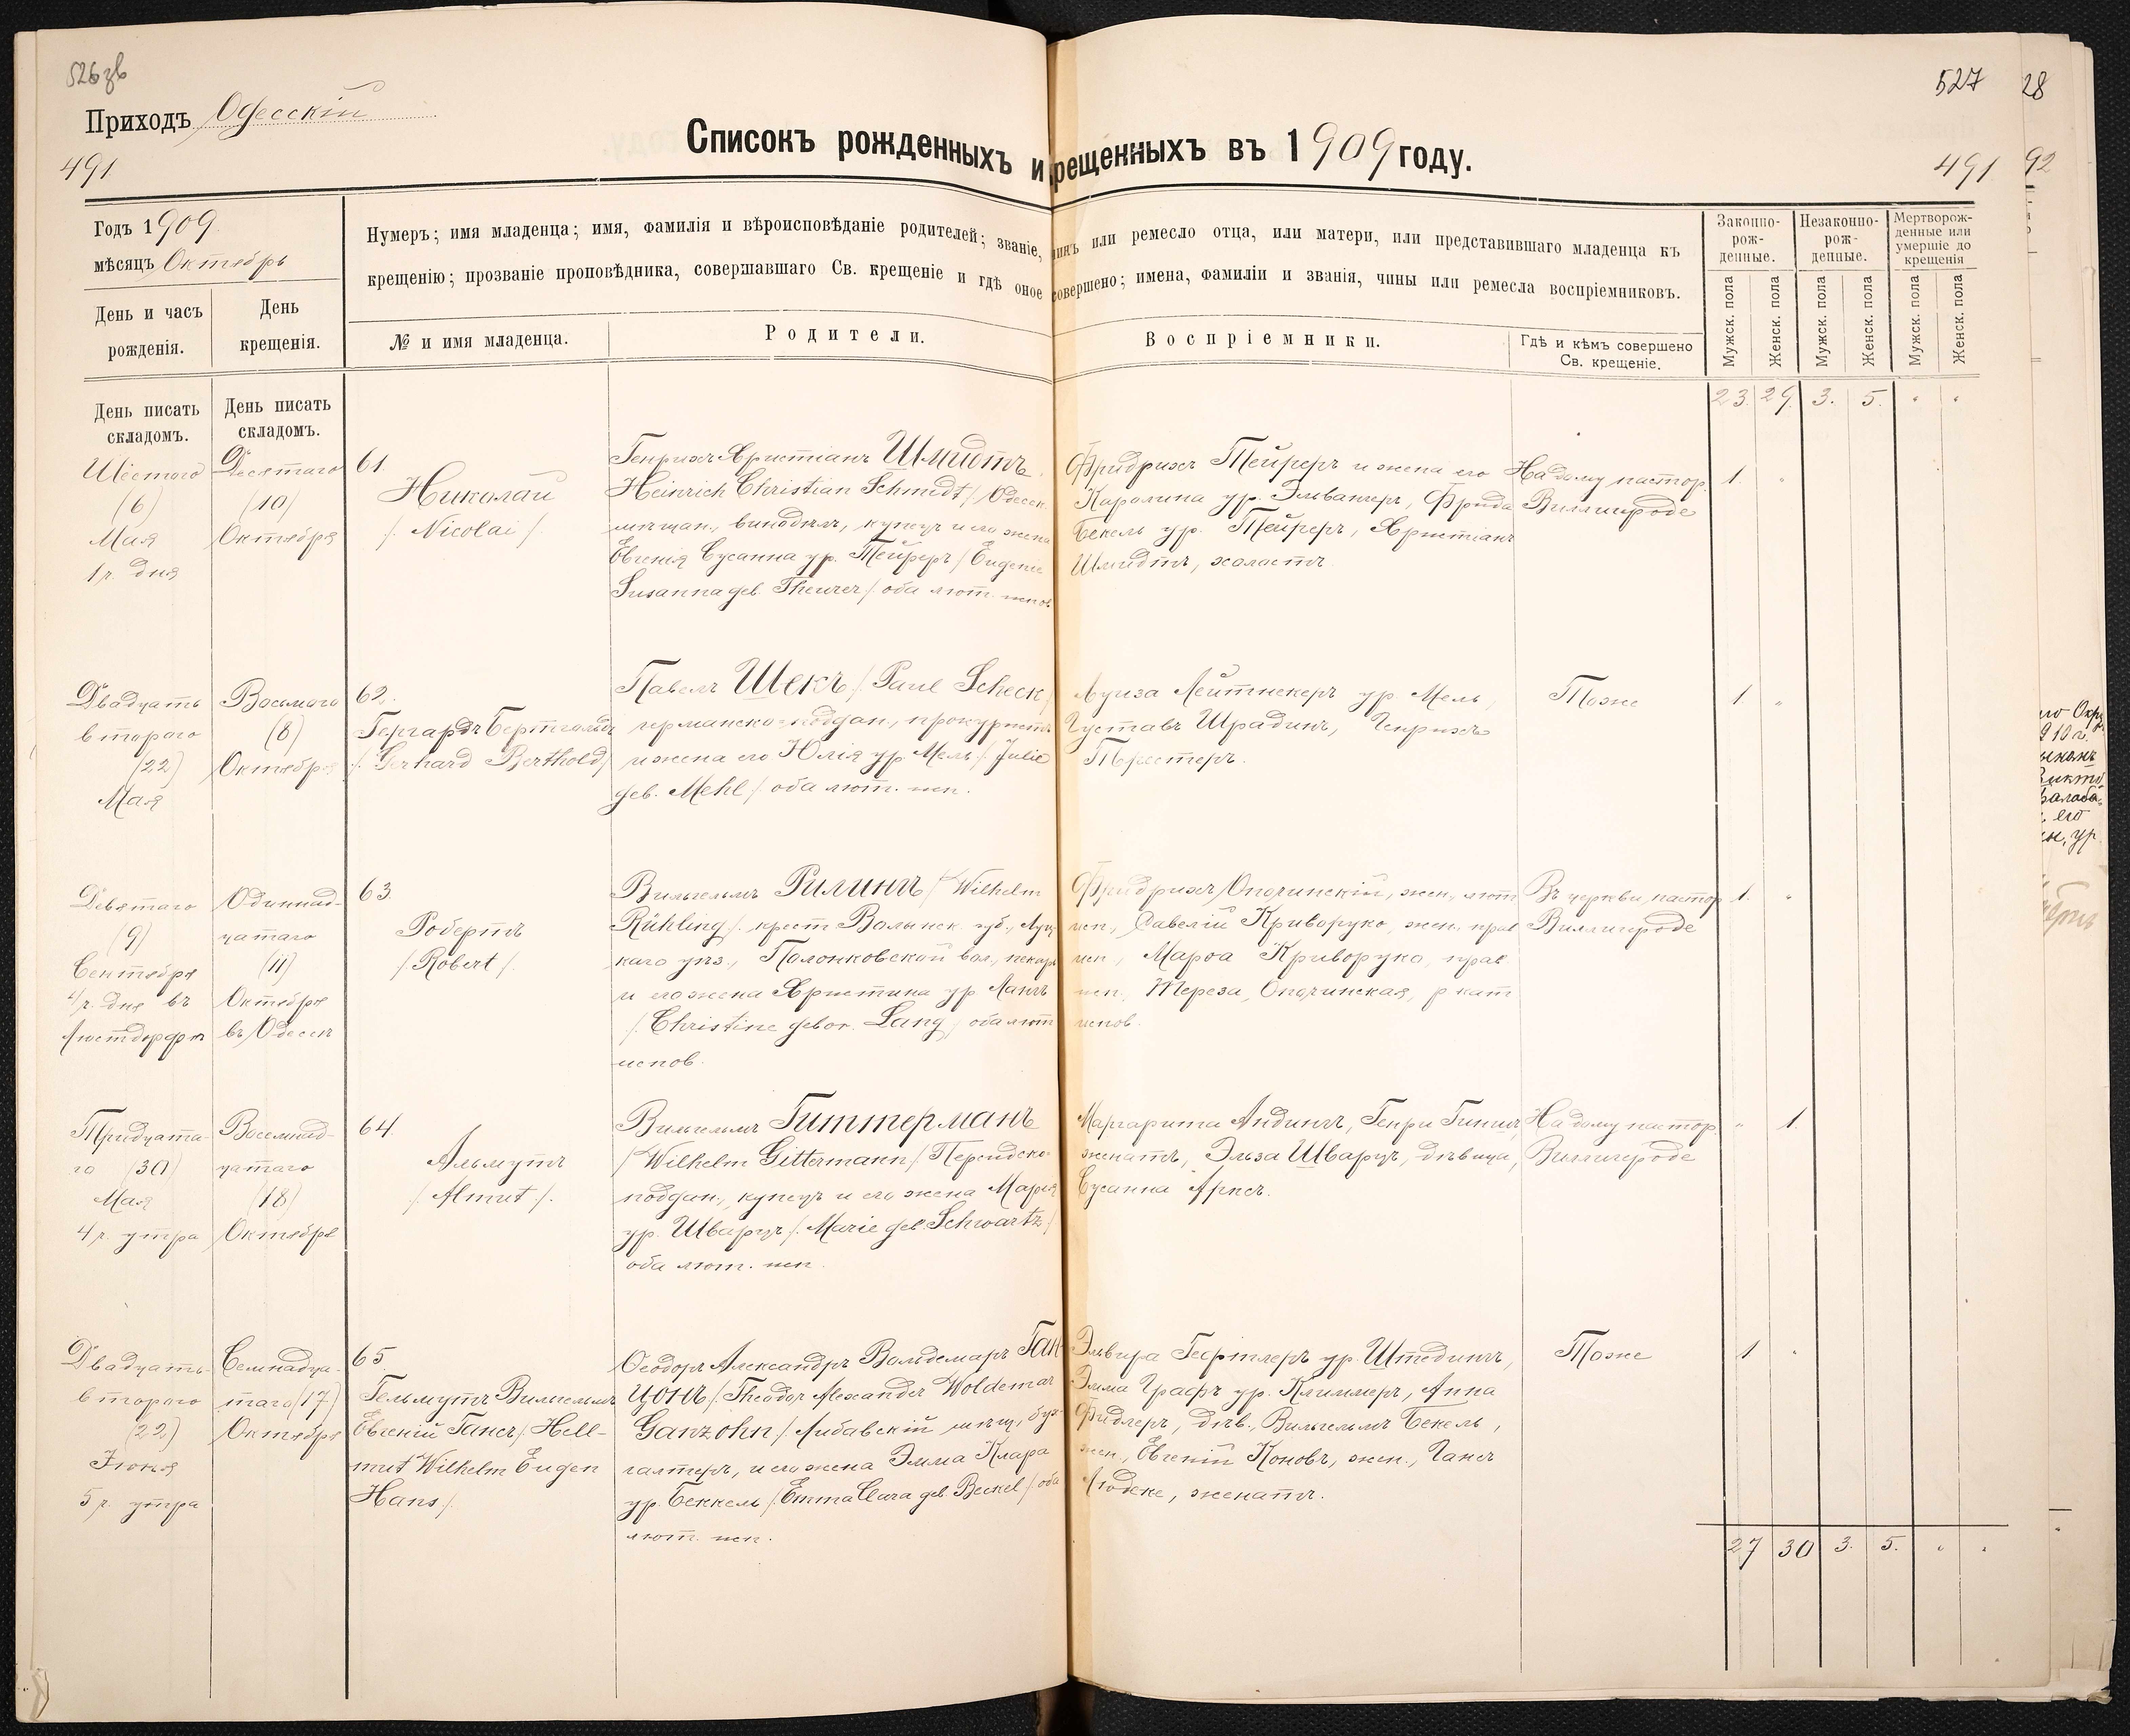 526 зв
527
Приходъ Одесскій
491
491
Списокъ рожденныхъ и крещенныхъ въ 1909 году.
Годъ 1909
мѣсяцъ Октябрь
Нумеръ; имя младенца; имя, фамилія и вѣроисповѣданіе родителей; званіе, чинъ или ремесло отца, или матери, или представившаго младенца къ
крещенію; прозваніе проповѣдника, совершавшаго Св. крещеніе и гдѣ оное совершено; имена, фамиліи и званія, чины или ремесла воспріемниковъ.
День и часъ рожденія.
День крещенія.
№ и имя младенца.
Родители.
Воспріемники.
Гдѣ и кѣмъ совершено
Св. крещеніе.
Законно-
рож-
денные.
Незаконно-
рож-
денные.
Мертворож-
денные или
умершіе до
крещенія
Мужск. пола
Женск. пола
Мужск. пола
Женск. пола
Мужск. пола
Женск. пола
День писать
складомъ.
День писать
складомъ.
23. 29. 3. 5. " "
Шестого
(6)
Мая
1 ч. дня
Десятаго
(10)
Октября
61
Николай
/. Nicolai /.
Генрихъ Христіанъ Шмидтъ
Heinrich Christian Schmidt /. Одесск.
мѣщан., винодѣлъ, купецъ и его жена
Евгенія Сусанна ур. Тейреръ /. Eugenie
Susanna geb. Theurer /. оба лют. испов.
Фридрихъ Тейреръ и жена его
Каролина ур. Эльвангеръ, Фрида
Бекель ур. Тейреръ, Христіанъ
Шмидтъ, холостъ.
На дому пастор.
Виллигероде
1. "
Двадцать
второго
(22)
Мая
Восьмого
(8)
Октября
62.
Гергардъ Бертгольдъ
/. Gerhard Berthold /
Павелъ Шекъ /. Paul Scheck /
германско-поддан., прокуристъ
и жена его Юлія ур. Мель /. Julie
geb. Mehl /. оба лют. исп.
Луиза Лейтнекеръ ур. Мель,
Густавъ Шрадинъ, Генрихъ
Тристеръ.
Тоже
1 "
Девятаго
(9)
Сентября
4 ч. дня въ
Люстдорфѣ
Одиннад-
цатаго
(11)
Октября
въ Одессѣ
63.
Робертъ
/. Robert /.
Вильгельмъ Рилингъ /. Wilhelm
Rühling /. крест. Волынск. губ., Луц-
каго уѣз., Полонковской вол., пекарь
и его жена Христина ур. Лангъ
/. Christine gebor. Lang /. оба лют.
испов.
Фридрихъ Опочинскій, жен., лют.
исп., Савелій Криворуко, жен., прав.
исп., Марѳа Криворуко, прав.
исп., Тереза Опочинская, р. кат.
испов.
Въ церкви, пастор
Виллигероде
1. "
Тридцата-
го (30)
Мая
4 ч. утра
Восемнад-
цатаго
(18)
Октября
64
Альмутъ
/. Almut /.
Вильгельмъ Гиттерманъ
/ Wilhelm Gittermann /. Персидско-
поддан., купецъ и его жена Марія
ур. Шварцъ /. Marie geb. Schwartz /
оба лют. исп.
Маргарита Андингъ, Генри
женатъ, Эльза Шварцъ, дѣвица,
Сусанна
На дому пастор.
Виллигероде
" 1.
Двадцать
второго
(22)
Іюня
5 ч. утра
Семнадца-
таго (17)
Октября
65.
Гельмутъ Вильгельмъ
Евгеній Гансъ /. Hell-
mut Wilhelm Eugen
Hans /.
Ѳеодоръ Александръ Вольдемаръ Ган-
цонъ /. Theodor Alexander Woldemar
Ganzohn /. Либавскій мѣщ., бух-
галтеръ, и его жена Эмма Клара
ур. Беккель /. Emma Clara geb. Beckel /. оба
лют. исп.
Эльвира Гефтлеръ ур. Штедингъ,
Эмма Графъ ур. Климмеръ, Анна
Фидлеръ, дѣв., Вильгельмъ Бекель,
жен., Евгеній Коновъ, жен., Гансъ
Людеке, женатъ.
Тоже
1 "
27 30 3. 5. " "